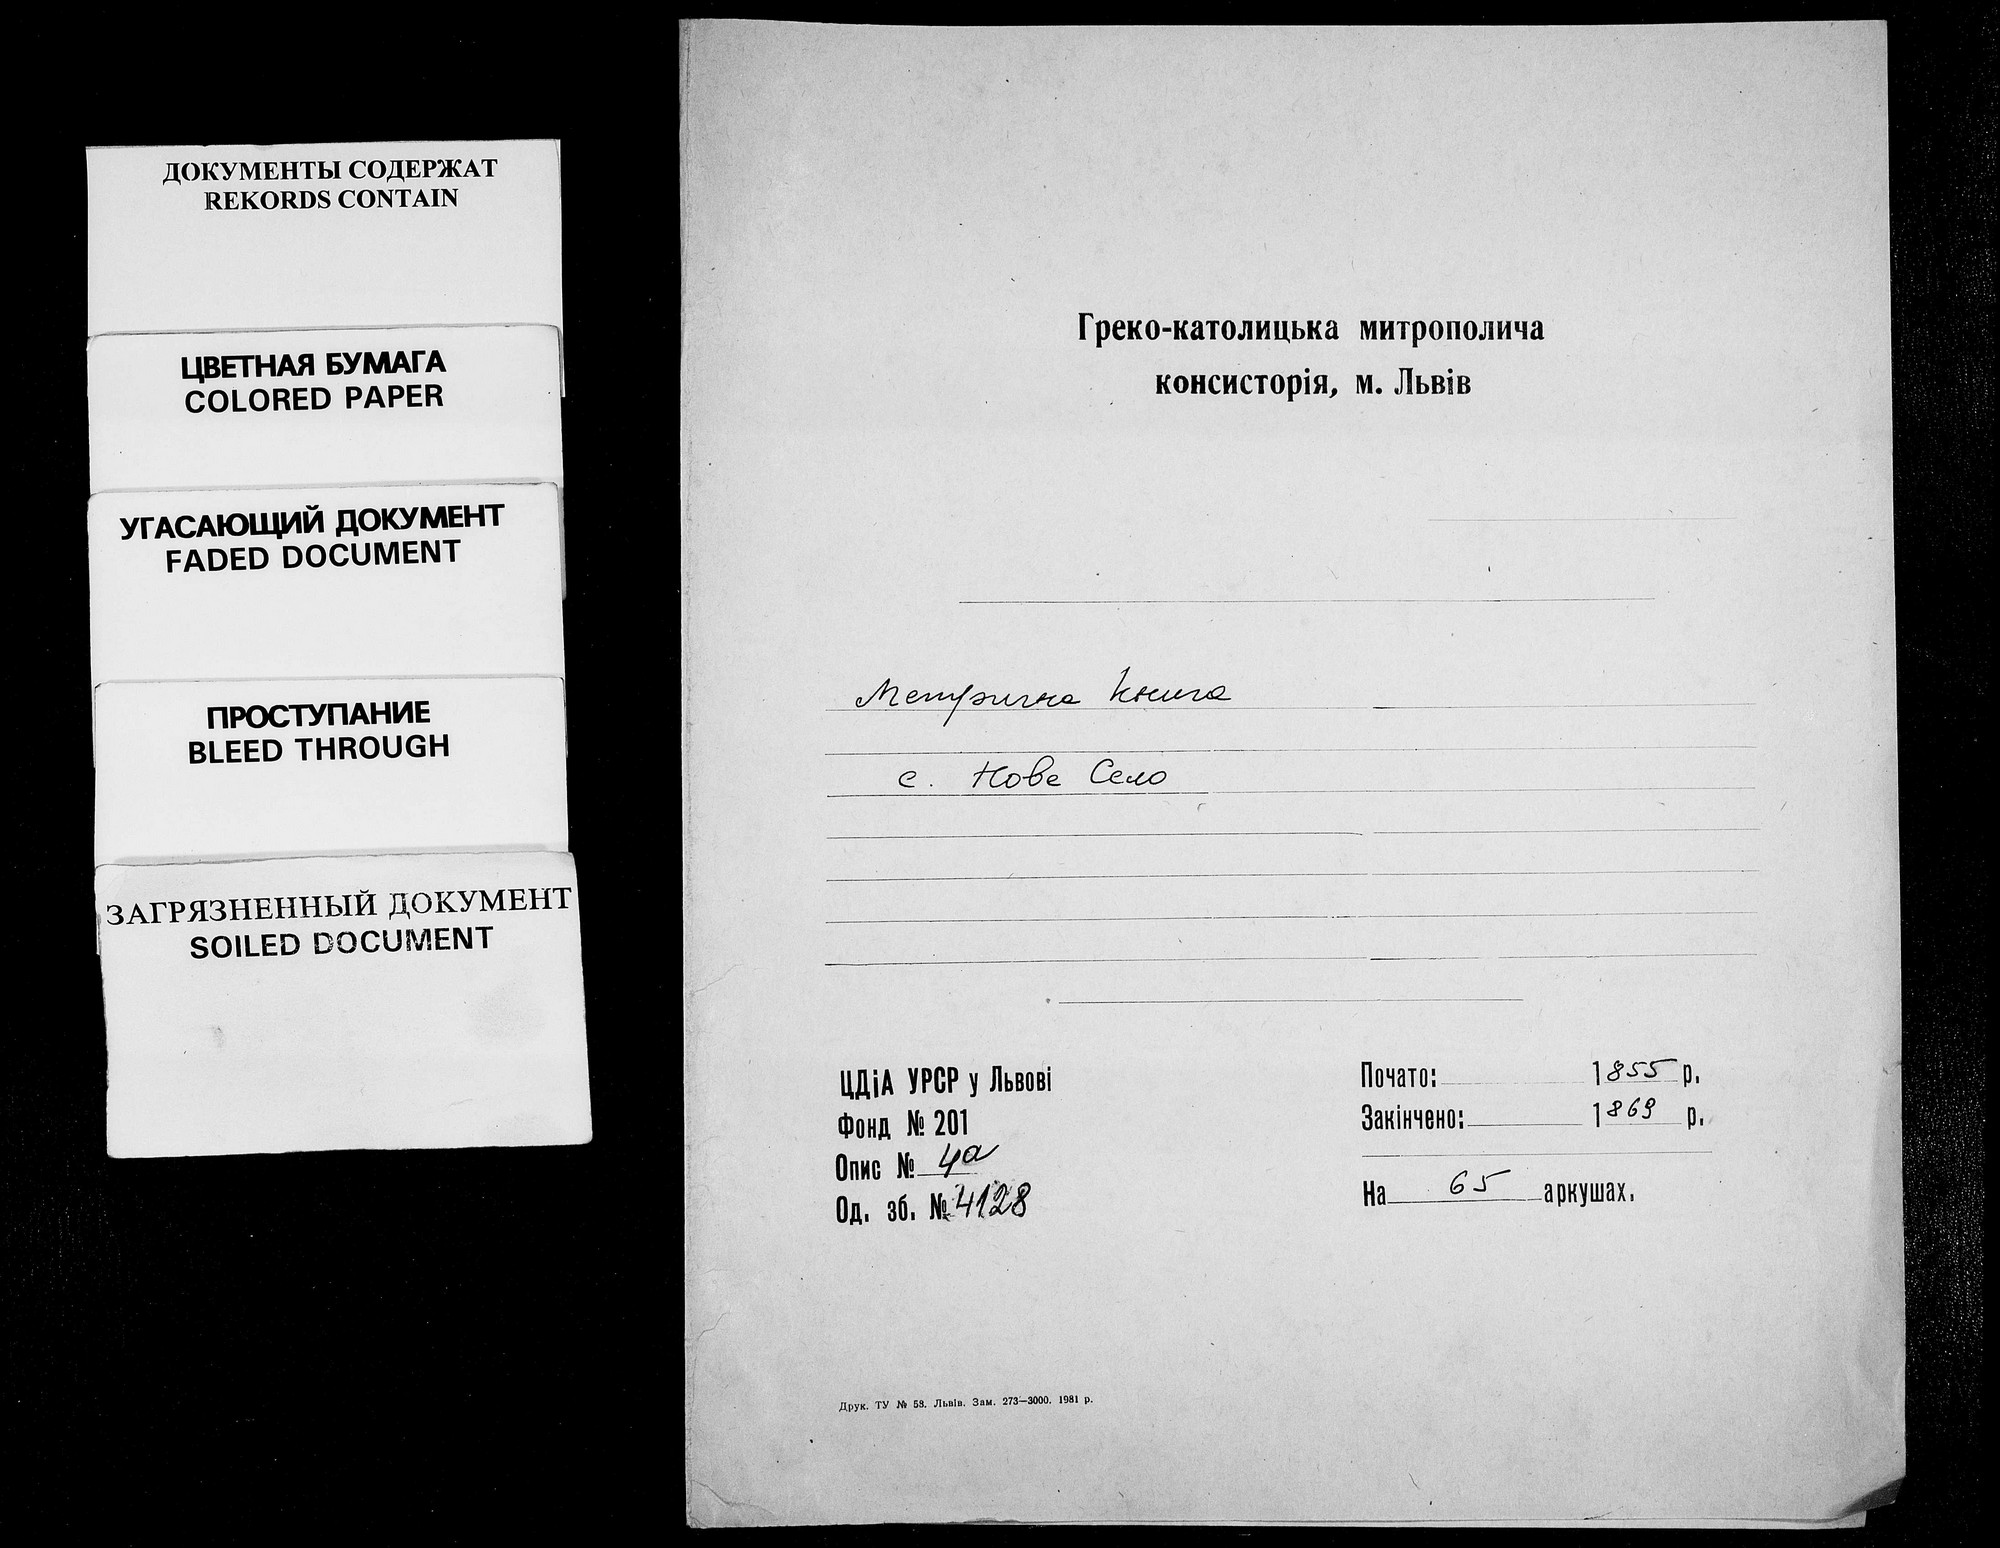 ДОКУМЕНТЫ СОДЕРЖАТ
REKORDS CONTAIN
ЦВЕТНАЯ БУМАГА
COLORED PAPER
УГАСАЮЩИЙ ДОКУМЕНТ
FADED DOCUMENT
ПРОСТУПАНИЕ
BLEED THROUGH
ЗАГРЯЗНЕННЫЙ ДОКУМЕНТ
SOILED DOCUMENT
Греко-католицька митрополича
консисторія, м. Львів
Метрична книга
с. Нове Село
ЦДіА УРСР у Львові
Фонд № 201
Опис № 4а
Од. зб. № 4128
Почато: 1855 р.
Закінчено: 1869 р.
На 65 аркушах.
Друк. ТУ № 58. Львів. Зам. 273—3000. 1981 р.